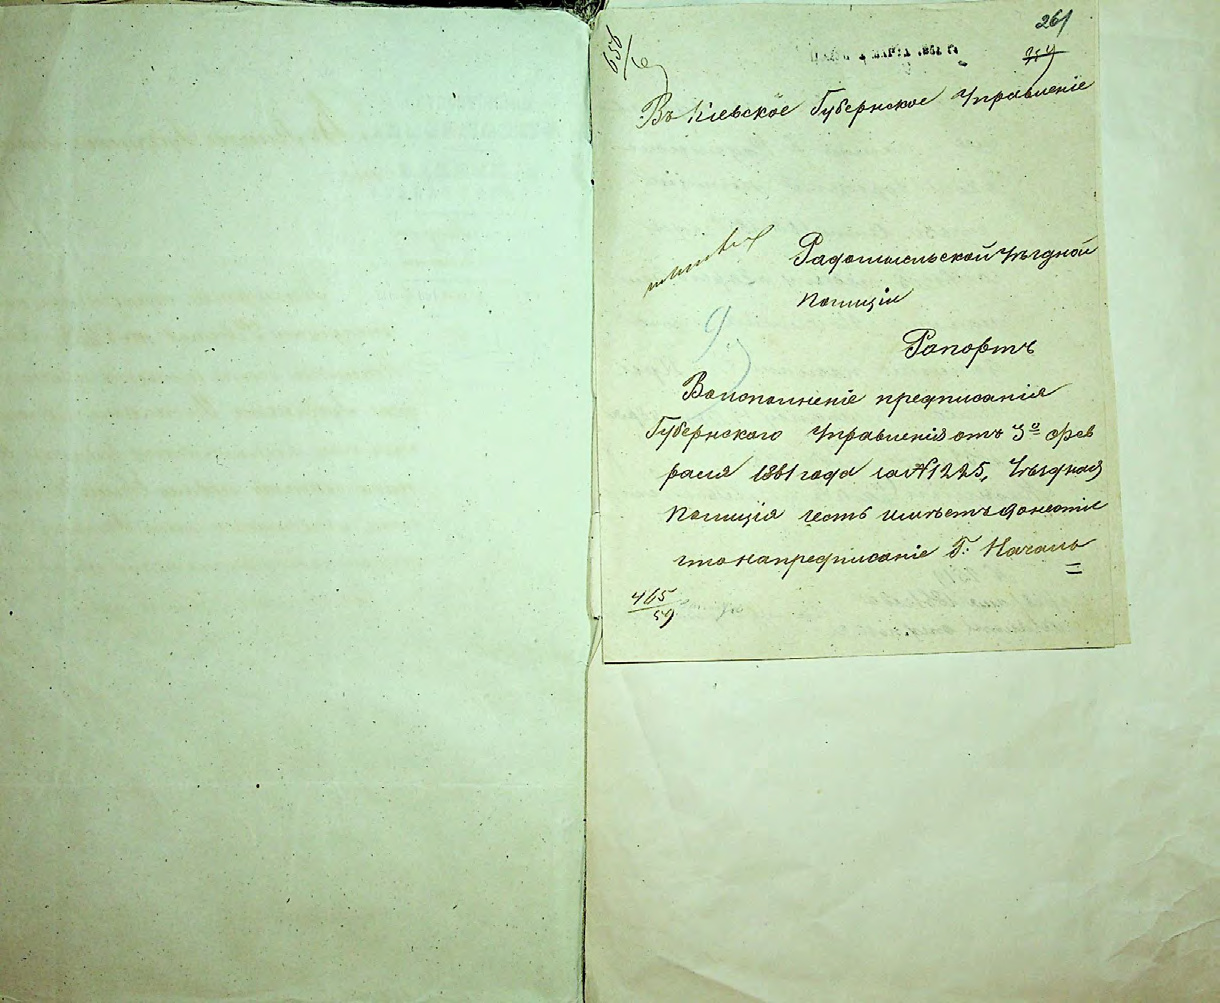 261
259
658/6
Въ Кіевское Губернское Управленіе
Радомысльской Уѣздной
Полиціи
Рапортъ
9
Воисполненіе предписанія
Губернскаго Управленія отъ 3º фев
раля 1861 года за № 1225, Уѣздная
Полиція честь имѣетъ донести
что на предписаніе Г. Началь
=
465/59